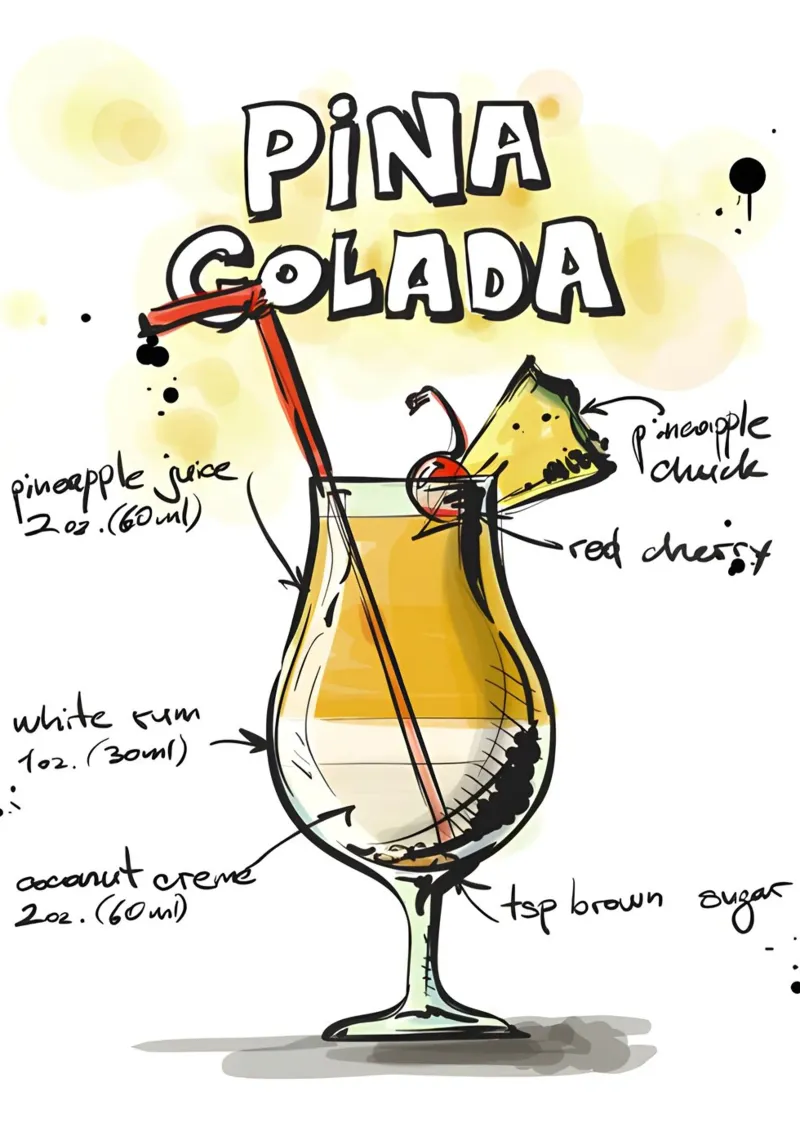 PiNA
COLADA
pineapple chuck
red cherry
pineapple juice
2 oz. (60 ml)
white rum
1 oz. (30 ml)
coconut creme
2 oz. (60 ml)
tsp brown sugar